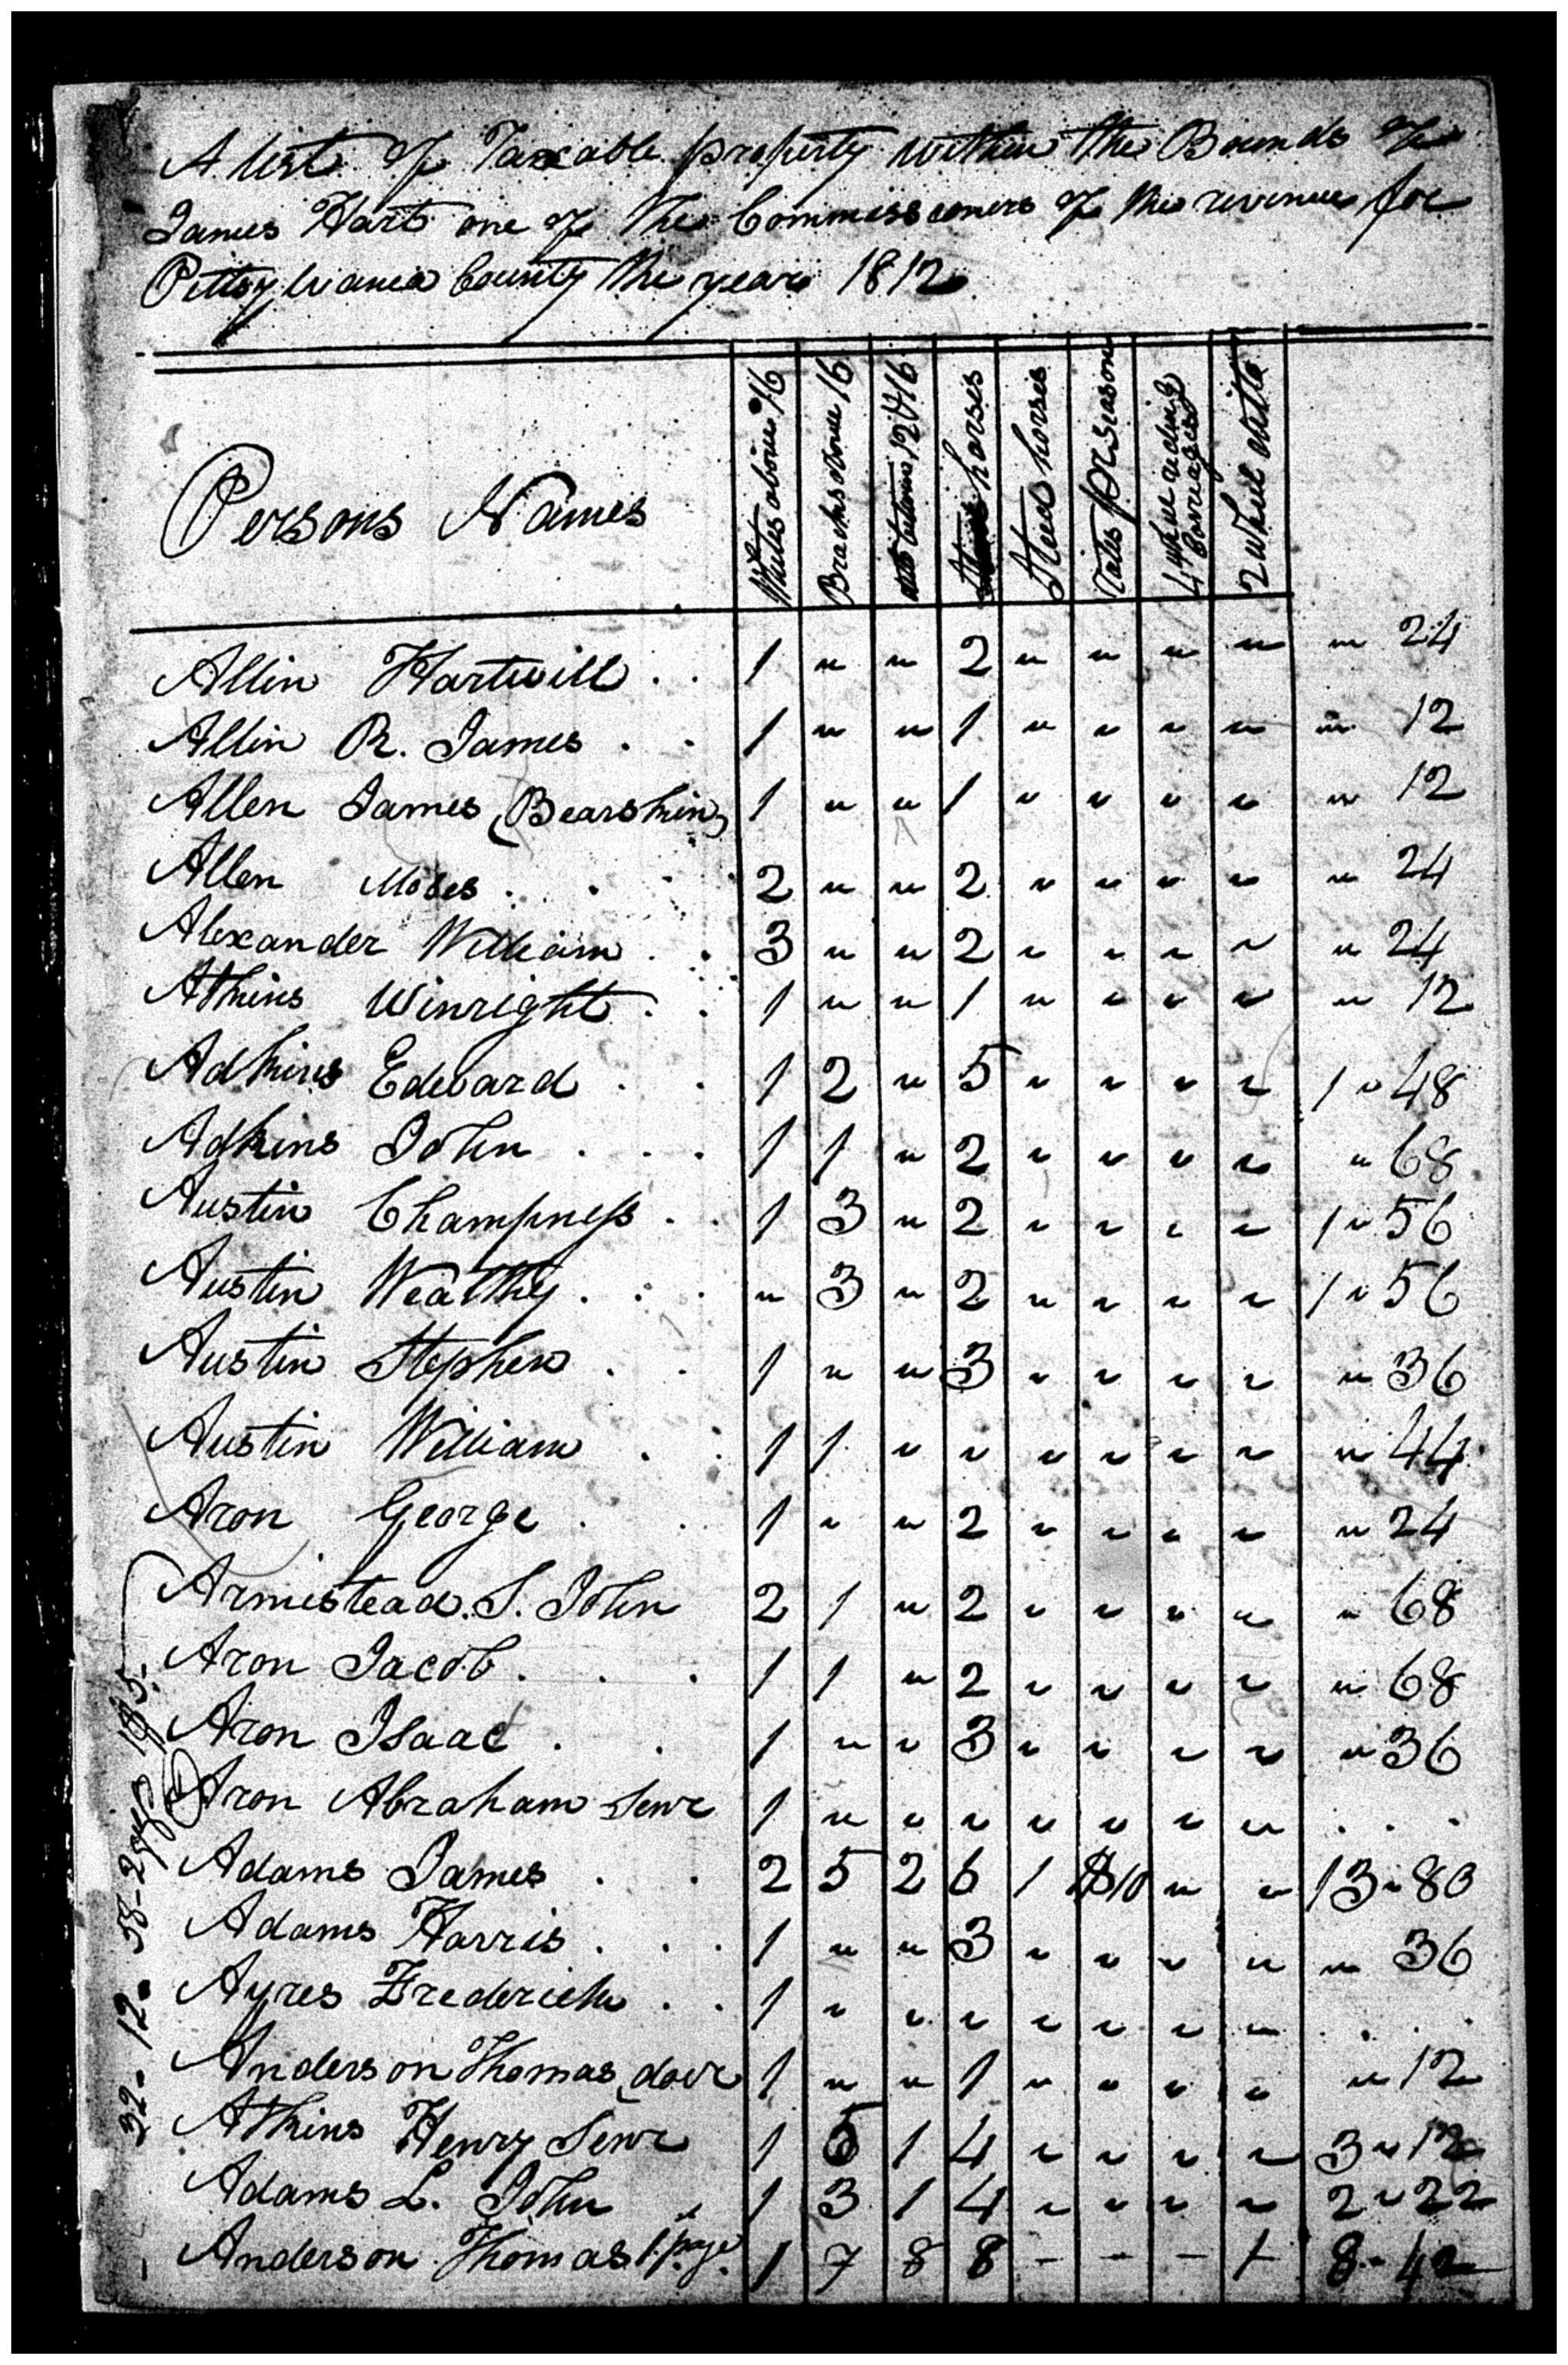 A list of Taxable property within the Bounds of
James Hart one of the Commissioners of the revenue for
Pittsylvania County the year 1812
Persons Names Whites above 16 Blacks above 16 between 12 & 16 horses Stud horses Rates pr Season 4 wheel riding Carriages 2 wheel ditto
Allin Hartwill . . 1 " " 2 " " " " " 24
Allin R. James . . 1 " " 1 " " " " " 12
Allen James (Bearskin) 1 " " 1 " " " " " 12
Allen Moses . . . 2 " " 2 " " " " " 24
Alexander William . . 3 " " 2 " " " " " 24
Atkins Winright . . 1 " " 1 " " " " " 12
Adkins Edward . . 1 2 " 5 " " " " 1 " 48
Adkins John . . . 1 1 " 2 " " " " " 68
Austin Champness . . 1 3 " 2 " " " " 1 " 56
Austin Weathy . . . " 3 " 2 " " " " 1 " 56
Austin Stephen . . 1 " " 3 " " " " " 36
Austin William . . 1 1 " " " " " " " 44
Aron George . . 1 " " 2 " " " " " 24
Armistead. S. John 2 1 " 2 " " " " " 68
Aron Jacob . . . 1 1 " 2 " " " " " 68
Aron Isaac . . 1 " " 3 " " " " " 36
Aron Abraham Senr 1 " " " " " " " . . .
Adams James . . 2 5 2 6 1 $10 " " 13 " 80
Adams Harris . . . 1 " " 3 " " " " " 36
Ayres Frederick . . 1 " " " " " " " . . .
Anderson Thomas 1 " " 1 " " " " " 12
Atkins Henry Senr 1 6 1 4 " " " " 3 " 12
Adams L. John 1 3 1 4 " " " " 2 " 22
Anderson Thomas 1 7 8 8 - - - 1 8 - 42
32 - 12 - 58 - 2